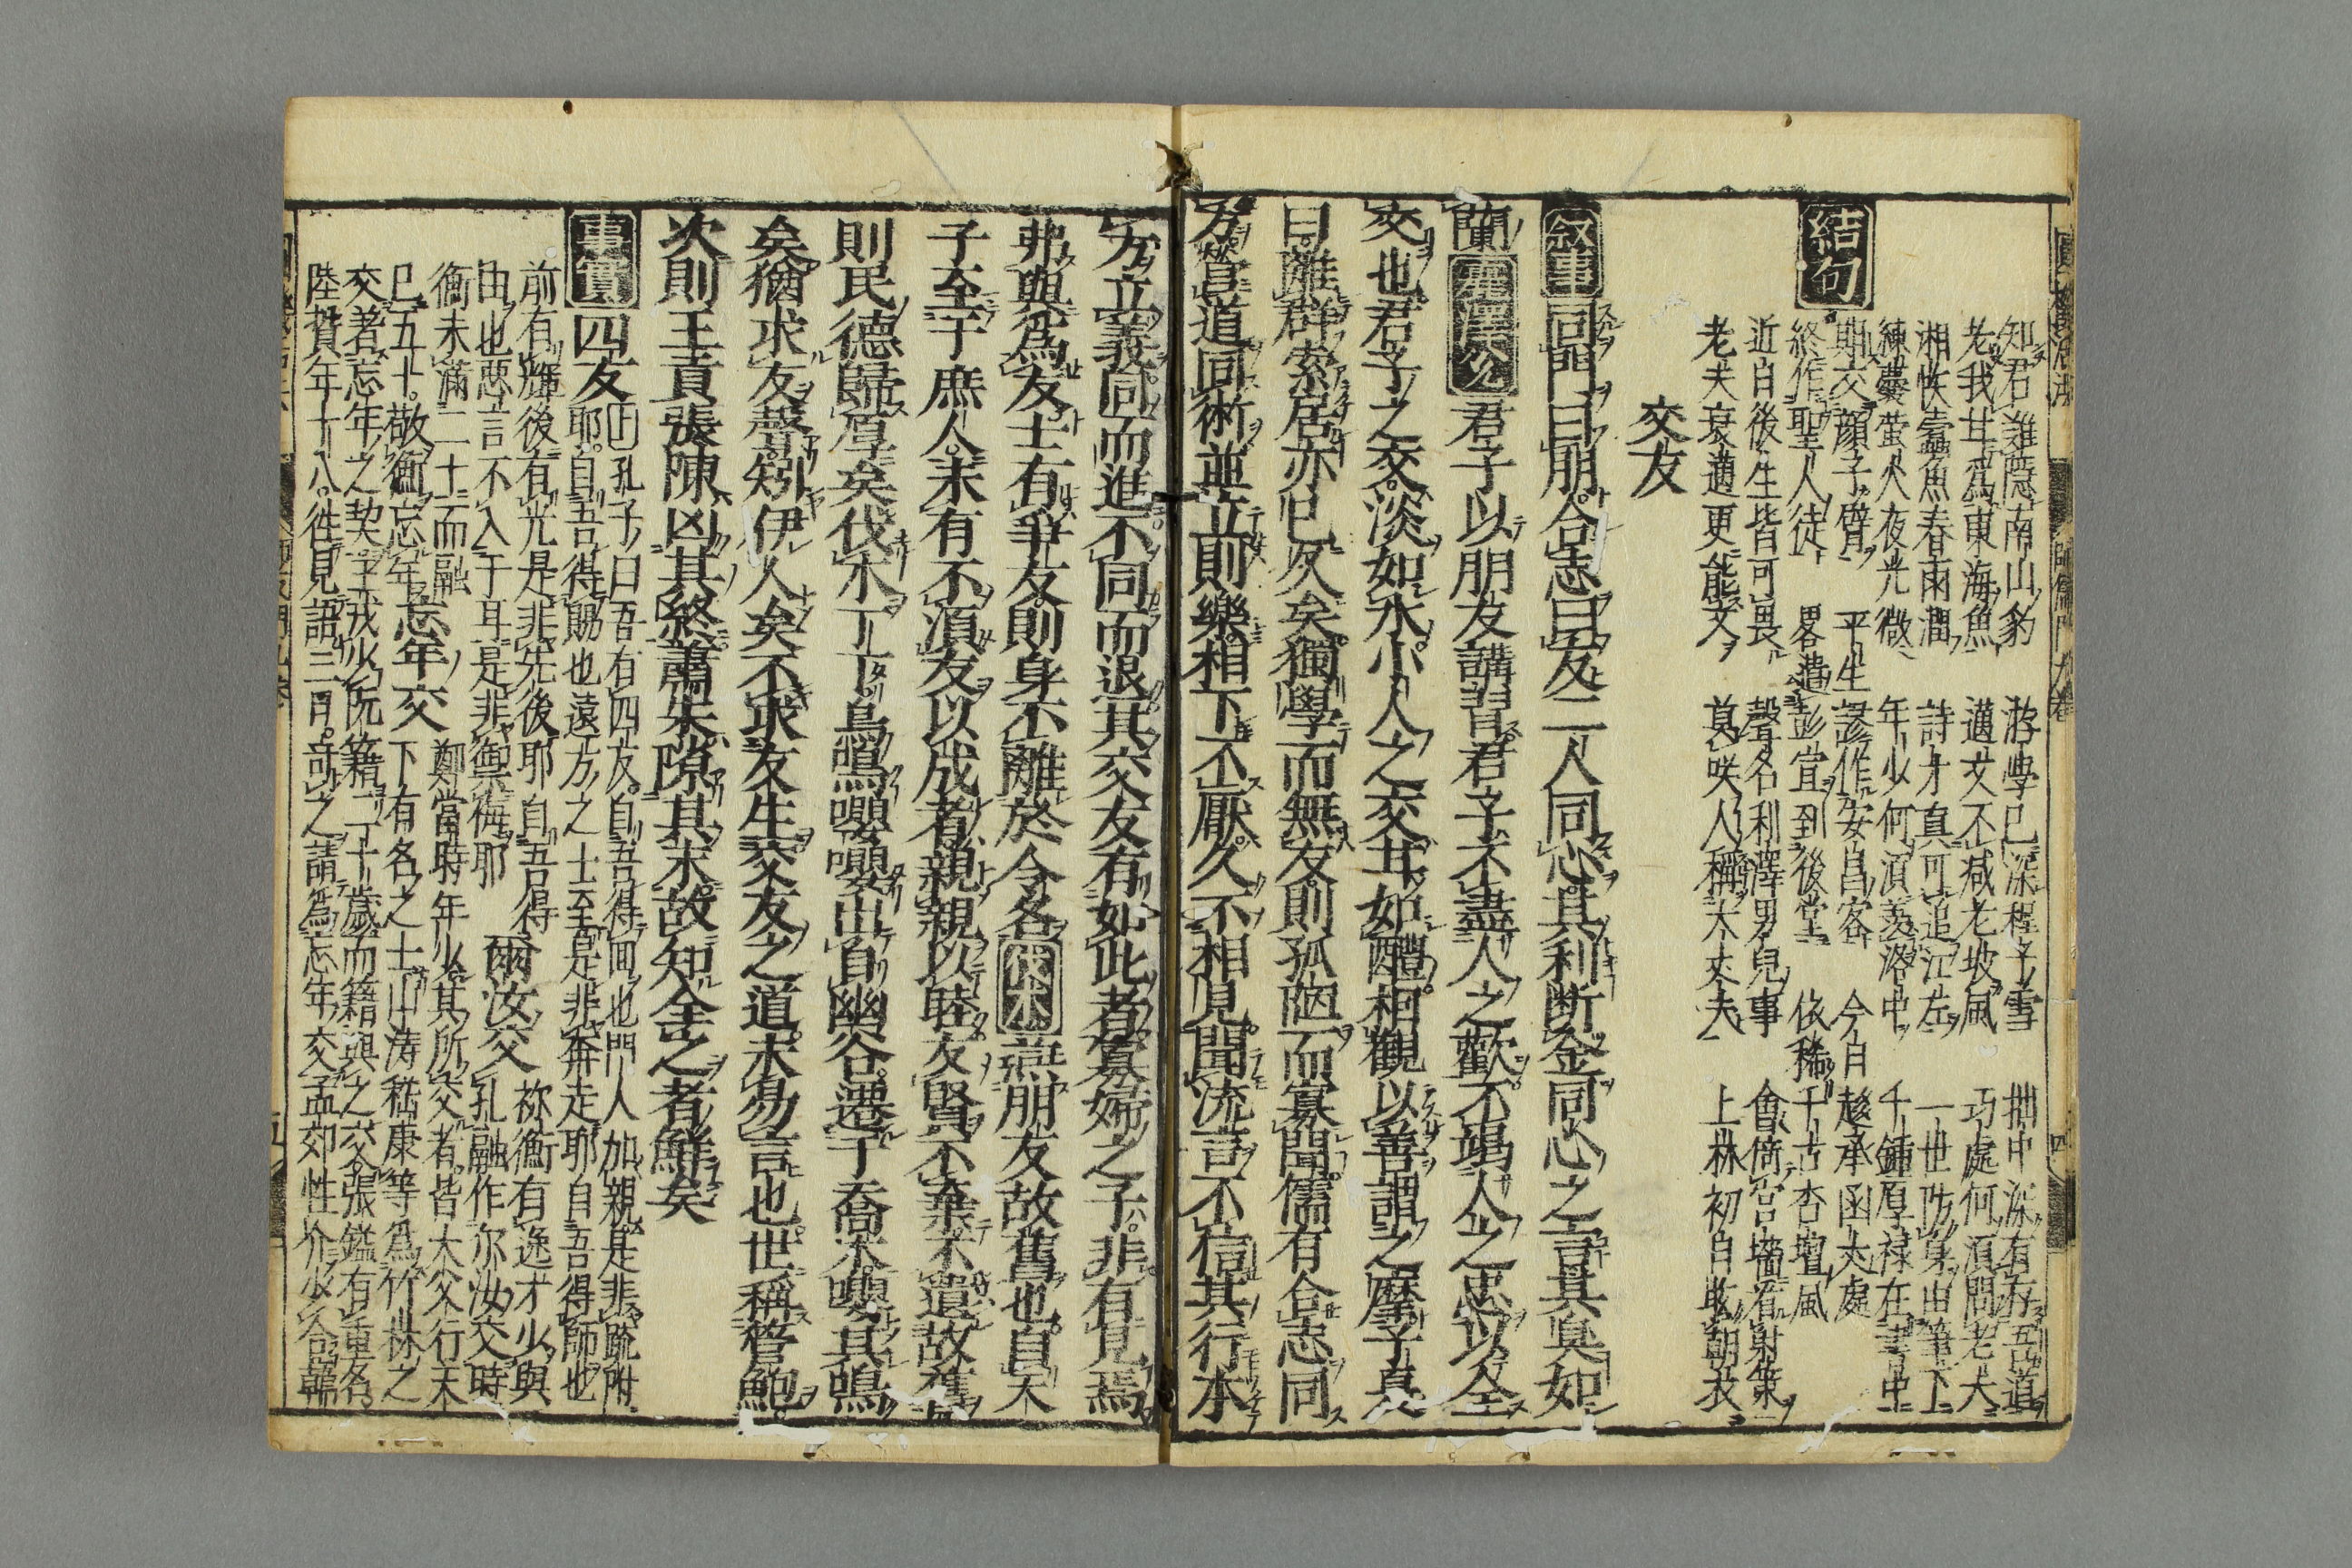 知君難隱南山豹 游學已深程子雪 拙中深有存吾道
老我甘爲東海魚 邁文不減老坡風 巧處何須問老大
湘帙蠹魚春雨潤 詩才真可追江左 一世防身由筆下
練嚢螢火夜光微 年少何須羨洛中 千鍾厚禄在書中
結句
期交顔子臂 平生謬作安昌客 今白趍承函丈處
終作聖人徒 畧造彭宣到後堂 依稀千古杏壇風
近白後生皆可畏 聲名利澤男兒事 會倚宮墻看射策
老夫衰邁更能文 莫咲人稱大丈夫 上林初白眩朝衣
交友
叙事 同門曰朋合志曰友二人同心其利断金同心之言其臭如
蘭 君子以朋友講習君子不盡人之歡不竭人之忠以全
交也君子之交淡如水小人之交甘如醴相觀以善謂之摩子夏
曰離群索居亦已久矣獨學而無友則孤陋而寡聞儒有合志同
方營道同術並立則樂相下不厭久不相見聞流言不信其行本
方立義同而進不同而退其交友有如此者寡婦之子非有見焉
弗與爲友士有爭友則身不離於令名 伐木 燕朋友故舊也自天
子至于庶人未有不湏友以成者親親以睦友賢不棄不遺故舊
則民德歸厚矣伐木丁丁鳥鳴嚶嚶出自幽谷遷于喬木嚶其鳴
矣猶求友聲矧伊人矣不求友生交友之道未易言也世稱管鮑
次則王貢張陳凶其終蕭朱隙其末故知全之者鮮矣
事實 四友 孔子曰吾有四友自吾得回也門人加親是非疏附
耶自吾得賜也遠方之士至是非奔走耶自吾得師也
前有輝後有光是非先後耶自吾得
由也惡言不入于耳是非禦侮耶 爾汝交 禰衡有逸才少與
孔融作尔汝交時
衡未滿二十而融
已五十敬衡忘年 忘年交 鄭當時年少其所交者皆大父行天
下有名之士山涛嵇康等爲竹林之
交著忘年之契王戎少阮籍二十歲而籍與之交張鑑有重名
陸贄年十八徃見語三日奇之請爲忘年交孟郊性介少合韓